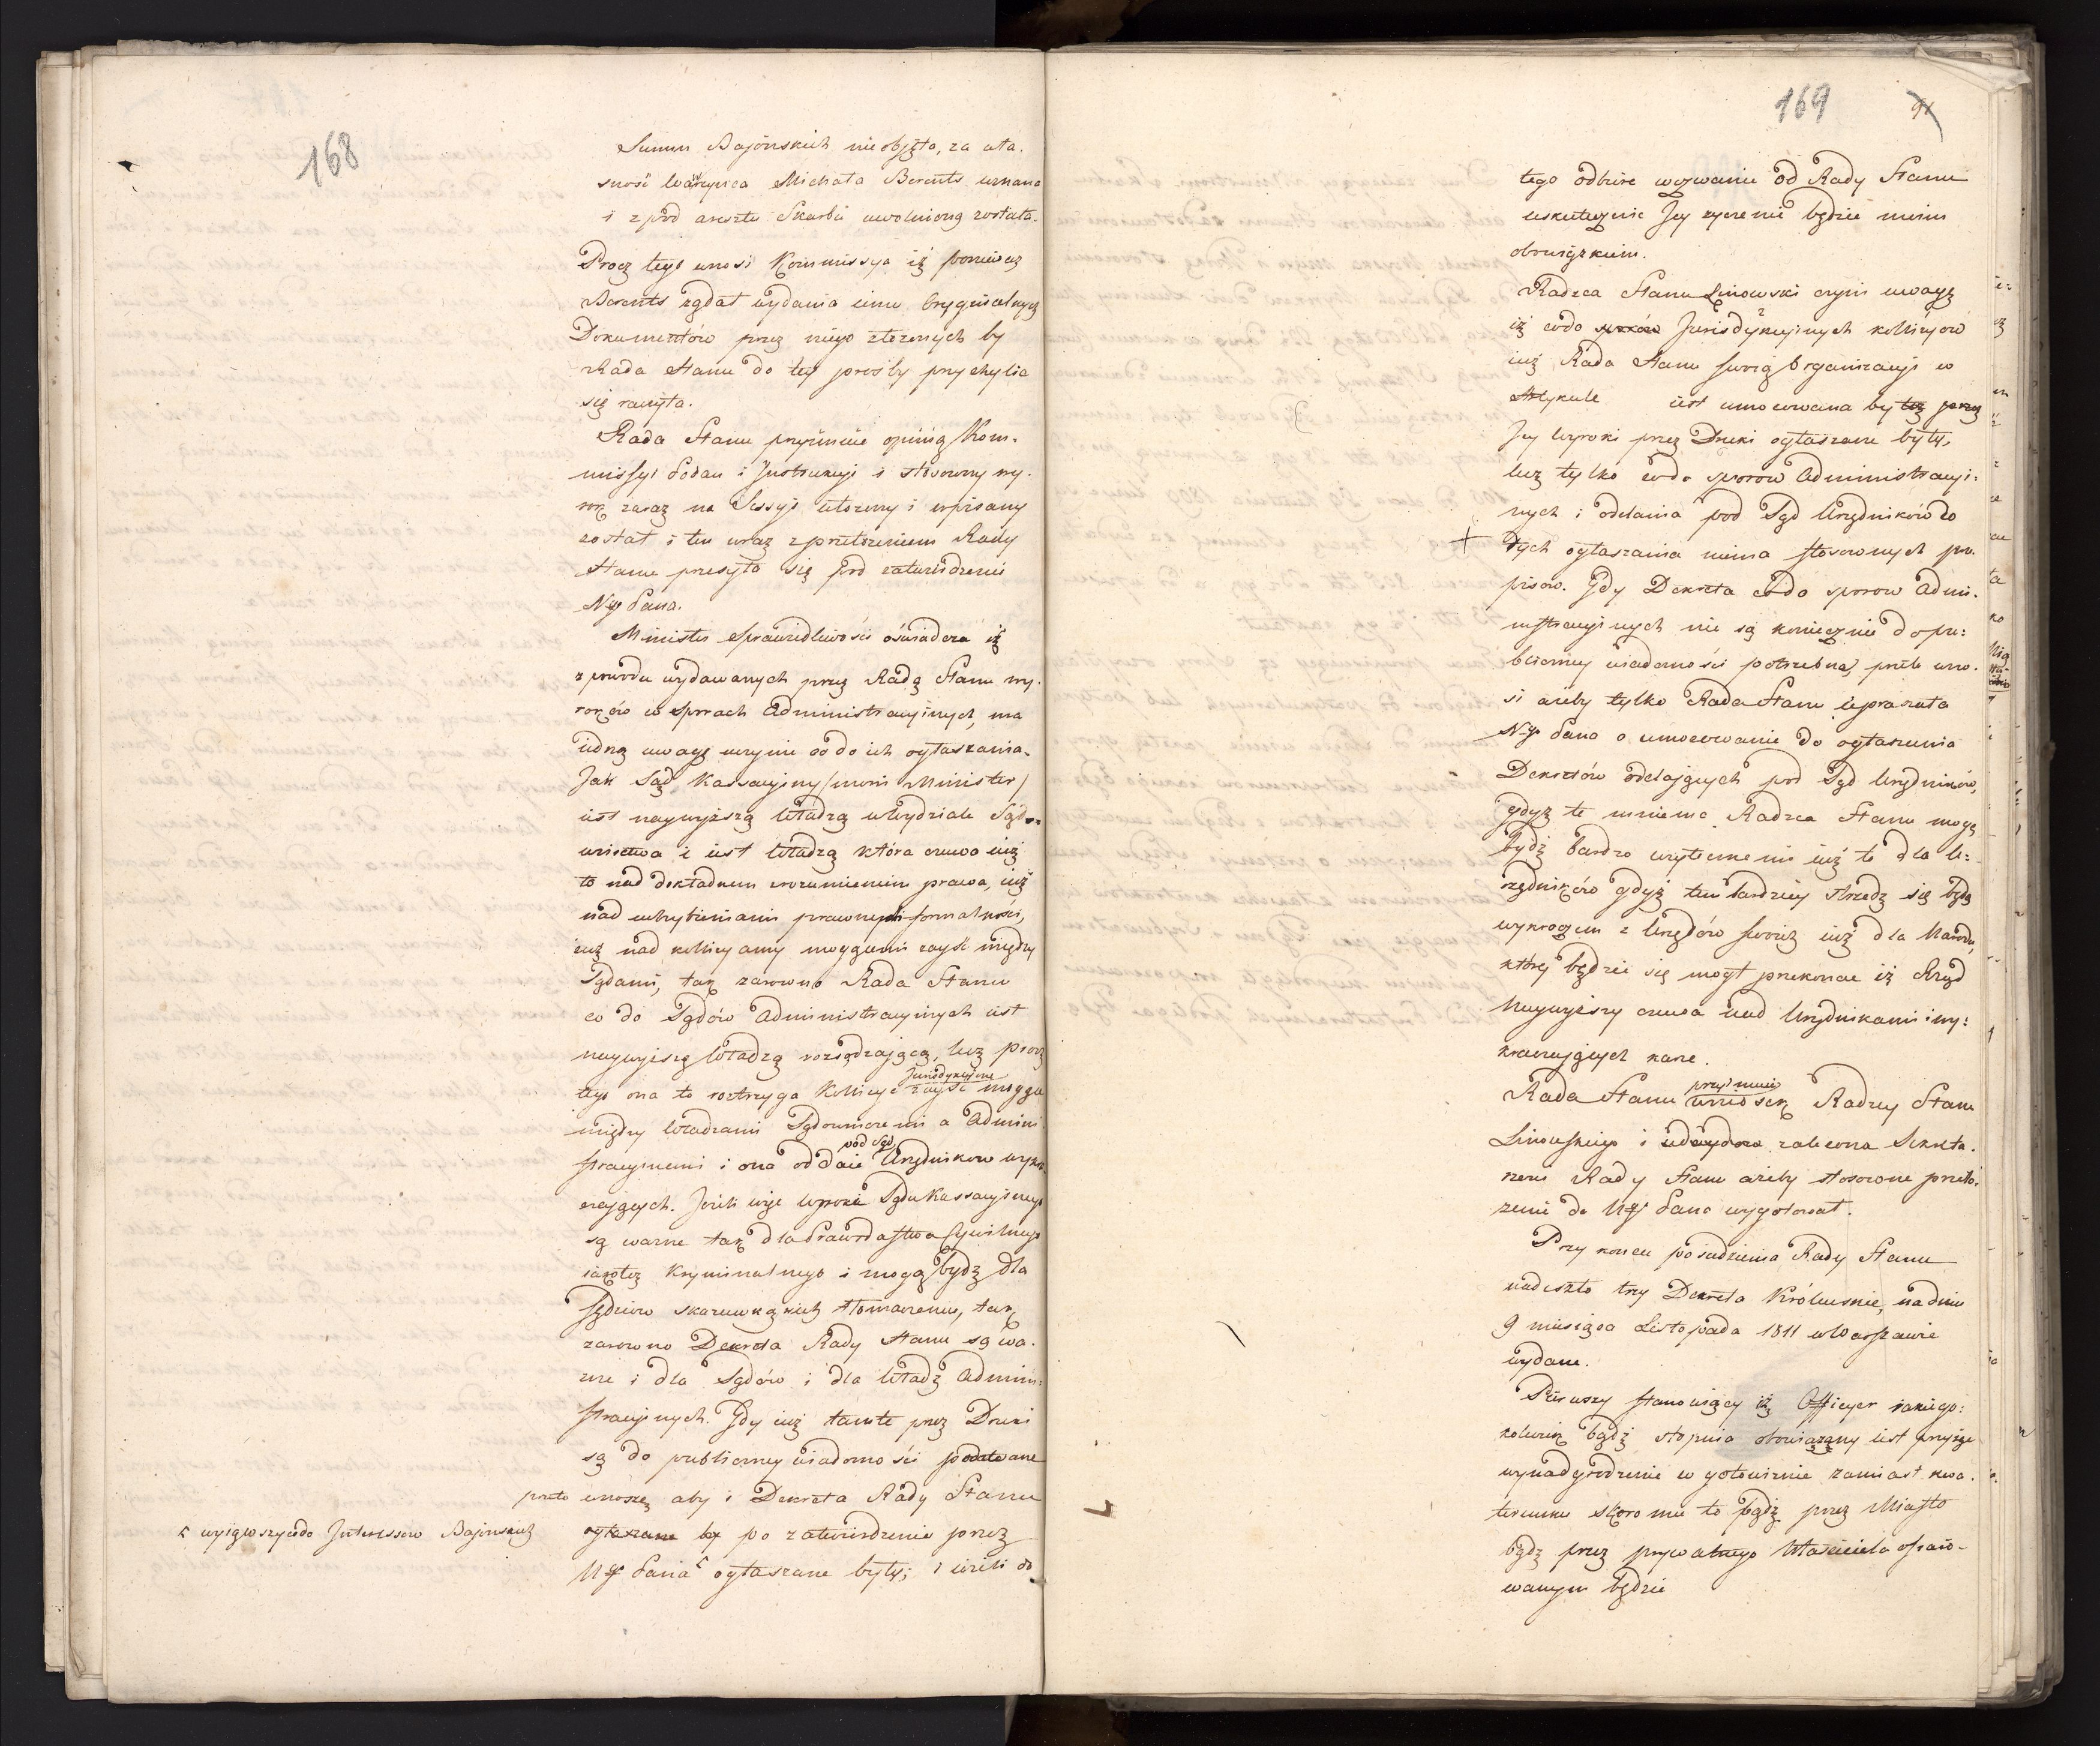 168
Summ Bajońskich nieobjęta, za wła-
sność Wawrzyńca Michała Berents uznana
i z pod aresztu Skarbu uwolnioną została.
Procz tego wnosi Kommissya iż ponieważ
Berents żądał wydania iemu Oryginalnych
Dokumentów przez niego złożonych by
Rada Stanu do tey prośby przychylić
się raczyła.
Rada Stanu przyimuie opinią Kom-
missyi Podań i Instrukcyi i stosowny wy-
rok zaraz na Sessyi ułożony i wpisany
został i ten wraz z przełożeniem Rady
Stanu przesyła się pod zatwierdzenie
Nyo Pana.
Minister Sprawiedliwości oświadcza iż
z powodu wydawanych przez Radę Stanu wy-
roków w sporach Administracyinych, ma
iedną uwagę uczynić co do ich ogłaszania.
Jak Sąd Kassacyiny /mówi Minister/
iest naywyższą Władzą w Wydziale Sądo-
wnictwa i iest Władzą która czuwa iuż
to nad dokładnem zrozumieniem prawa, iuż
nad uchybieniami prawney formalności,
iuż nad kollizyamy mogącemi zayść między
Sądami, tak zarowno Rada Stanu
co do Sądów Administracyinych iest
naywyższą Władzą rozsądzaiącą, lecz procz
tego ona to roztrzyga Kollizye Jurisdykcyine zayść mogące
między Władzami Sądowniczemi a Admini-
stracyinemi i ona oddaie pod Sąd Urzędników wykra-
czaiących. Jeżeli więc wyroki Sądu Kassacyinego
są ważne tak dla Prawodastwa Cywilnego
iakoteż Kryminalnego i mogą bydź dla
Sędziów skazuwką ich tłomaczenia, tak
zarowno Dekreta Rady Stanu są wa-
żne i dla Sądów i dla Władz Admini-
stracyinych. Gdy iuż tamte przez Druki
są do publiczney wiadomości podawane
przeto wnoszę aby i Dekreta Rady Stanu
ogłaszane by po zatwierdzeniu przez
Nyo Pana ogłaszane były; i ieżeli do
wyiąwszy co do Interessow Bajonskich
169
91
tego odbiorę wezwanie od Rady Stanu
uskutecznić Jey życzenie będzie moim
obowiązkiem.
Radzca Stanu Linowski czyni uwagę
iż co do sporów Jurisdykcyinych kollizyow
iuż Rada Stanu swoią Organizacyi w
Artykule iest umocowana by też przez
Jey wyroki przez Druki ogłaszane były,
lecz tylko co do sporow Administracyi-
nych i oddania pod Sąd Urzędników do
+ tych ogłaszania niema stosownych prze-
pisow. Gdy Dekreta co do sporow Admi-
nistracyinych nie są koniecznie do pu-
bliczney wiadomości potrzebne, przeto wno-
si ażeby tylko Rada Stanu upraszała
Nyo Pana o umocowanie do ogłaszenia
Dekretów oddaiących pod Sąd Urzędników,
gdyż te mniema Radzca Stanu mogą
bydź bardzo użyteczne nie iuż to dla U-
rzędników gdyż tem bardziey strzedz się będą
wykroczeń z Urzędów swoich iuż dla Narodu,
który będzie się mógł przekonać iż Rząd
Naywyższy czuwa nad Urzędnikami i wy-
kraczaiących karze.
Rada Stanu przyimuie wniosek Radzcy Stanu
Linowskiego i zaleca Sekreta-
rzowi Rady Stanu ażeby stosowne przeło-
żenie do Nyo Pana wygotował.
Przy końcu posiedzenia Rady Stanu
nadeszło trzy Dekreta Królewskie, na dniu
9 miesiąca Listopada 1811 w Warszawie
wydane.
Pierwszy stanowiący iż Officyer iakiego-
kolwiek bądź stopnia obowiązany iest przyiąć
wynadgrodzenie w gotowiznie zamiast kwa-
terunku skoro mu to bądź przez Miasto
bądź przez prywatnego Właściciela ofiaro-
wanym będzie